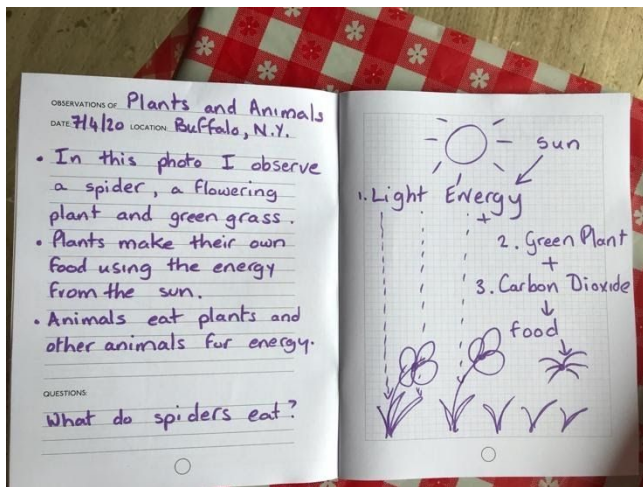 OBSERVATIONS OF Plants and Animals
DATE 7/4/20 LOCATION Buffalo, N.Y.
• In this photo I observe
a spider, a flowering
plant and green grass.
• Plants make their own
food using the energy
from the sun.
• Animals eat plants and
other animals for energy.
QUESTIONS:
What do spiders eat?
sun
1. Light Energy
+
2. Green Plant
+
3. Carbon Dioxide
food